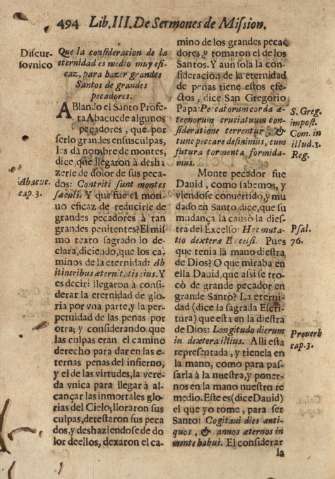 494 Lib. III. De Sermones de Mission.
Discur-
so vnico
Que la consideracion de la
eternidad es medio muy efi-
caz, para hazer grandes
Santos de grandes
pecadores.
ABlando el Santo Profe-
ta Abacuc de algunos
pecadores, que por
serlo grandes en sus culpas,
les dà nombre de montes,
dice, que llegaron à desha-
zerse de dolor de sus peca-
dos: Contriti sunt montes
sæculi. Y què fue el moti-
vo eficaz de reducirse de
grandes pecadores à tan
grandes penitentes? El mis-
mo texto sagrado lo de-
clara, diciendo, que los ca-
minos de la eternidad: Ab
itineribus æternitatis eius. Y
es decir: llegaron à consi-
derar la eternidad de glo-
ria por vna parte, y la per-
petuidad de las penas por
otra; y considerando, que
las culpas eran el camino
derecho para dar en las e-
ternas penas del infierno,
y el de las virtudes, la vere-
da vnica para llegar à al-
cançar las inmortales glo-
rias del Cielo, lloraron sus
culpas, detestaron sus peca-
dos, y deshaziendose de do
lor de ellos, dexaron el ca-
Abacuc.
cap. 3.
mino de los grandes peca-
dores, y tomaron el de los
Santos. Y aun sola la con-
sideracion de la eternidad
de penas tiene estos efe-
ctos, dice San Gregorio
Papa: Pecatorum corda æ-
ternorum cruciatuum con-
sideratione terrentur, &
tunc peccare desinimus, cum
futura tormenta formida-
mus.
Monte pecador fue
David, como sabemos, y
viendose convertido, y mu
dado en Santo, dice, que su
mudança la causò la dies-
tra del Excelso: Hæc muta-
tio dexteræ Excelsi. Pues
que tenia la mano diestra
de Dios? O que miraba en
ella David, que assi se tro-
cò de grande pecador en
grande Santo? La eterni-
dad (dice la sagrada Escri-
tura) que està en la diestra
de Dios: Longitudo dierum
in dextera illius. Alli esta
representada, y tienela en
la mano, como para pas-
sarla à la nuestra, y poner-
nos en la mano nuestro re
medio. Este es (dice David)
el que yo tome, para ser
Santo: Cogitavi dies anti-
quos, & annos æternos in
mente habui. El considerar
la
S. Greg.
impost.
Com. in
illud. 1.
Reg.
Psal.
76.
Proverb
cap. 3.